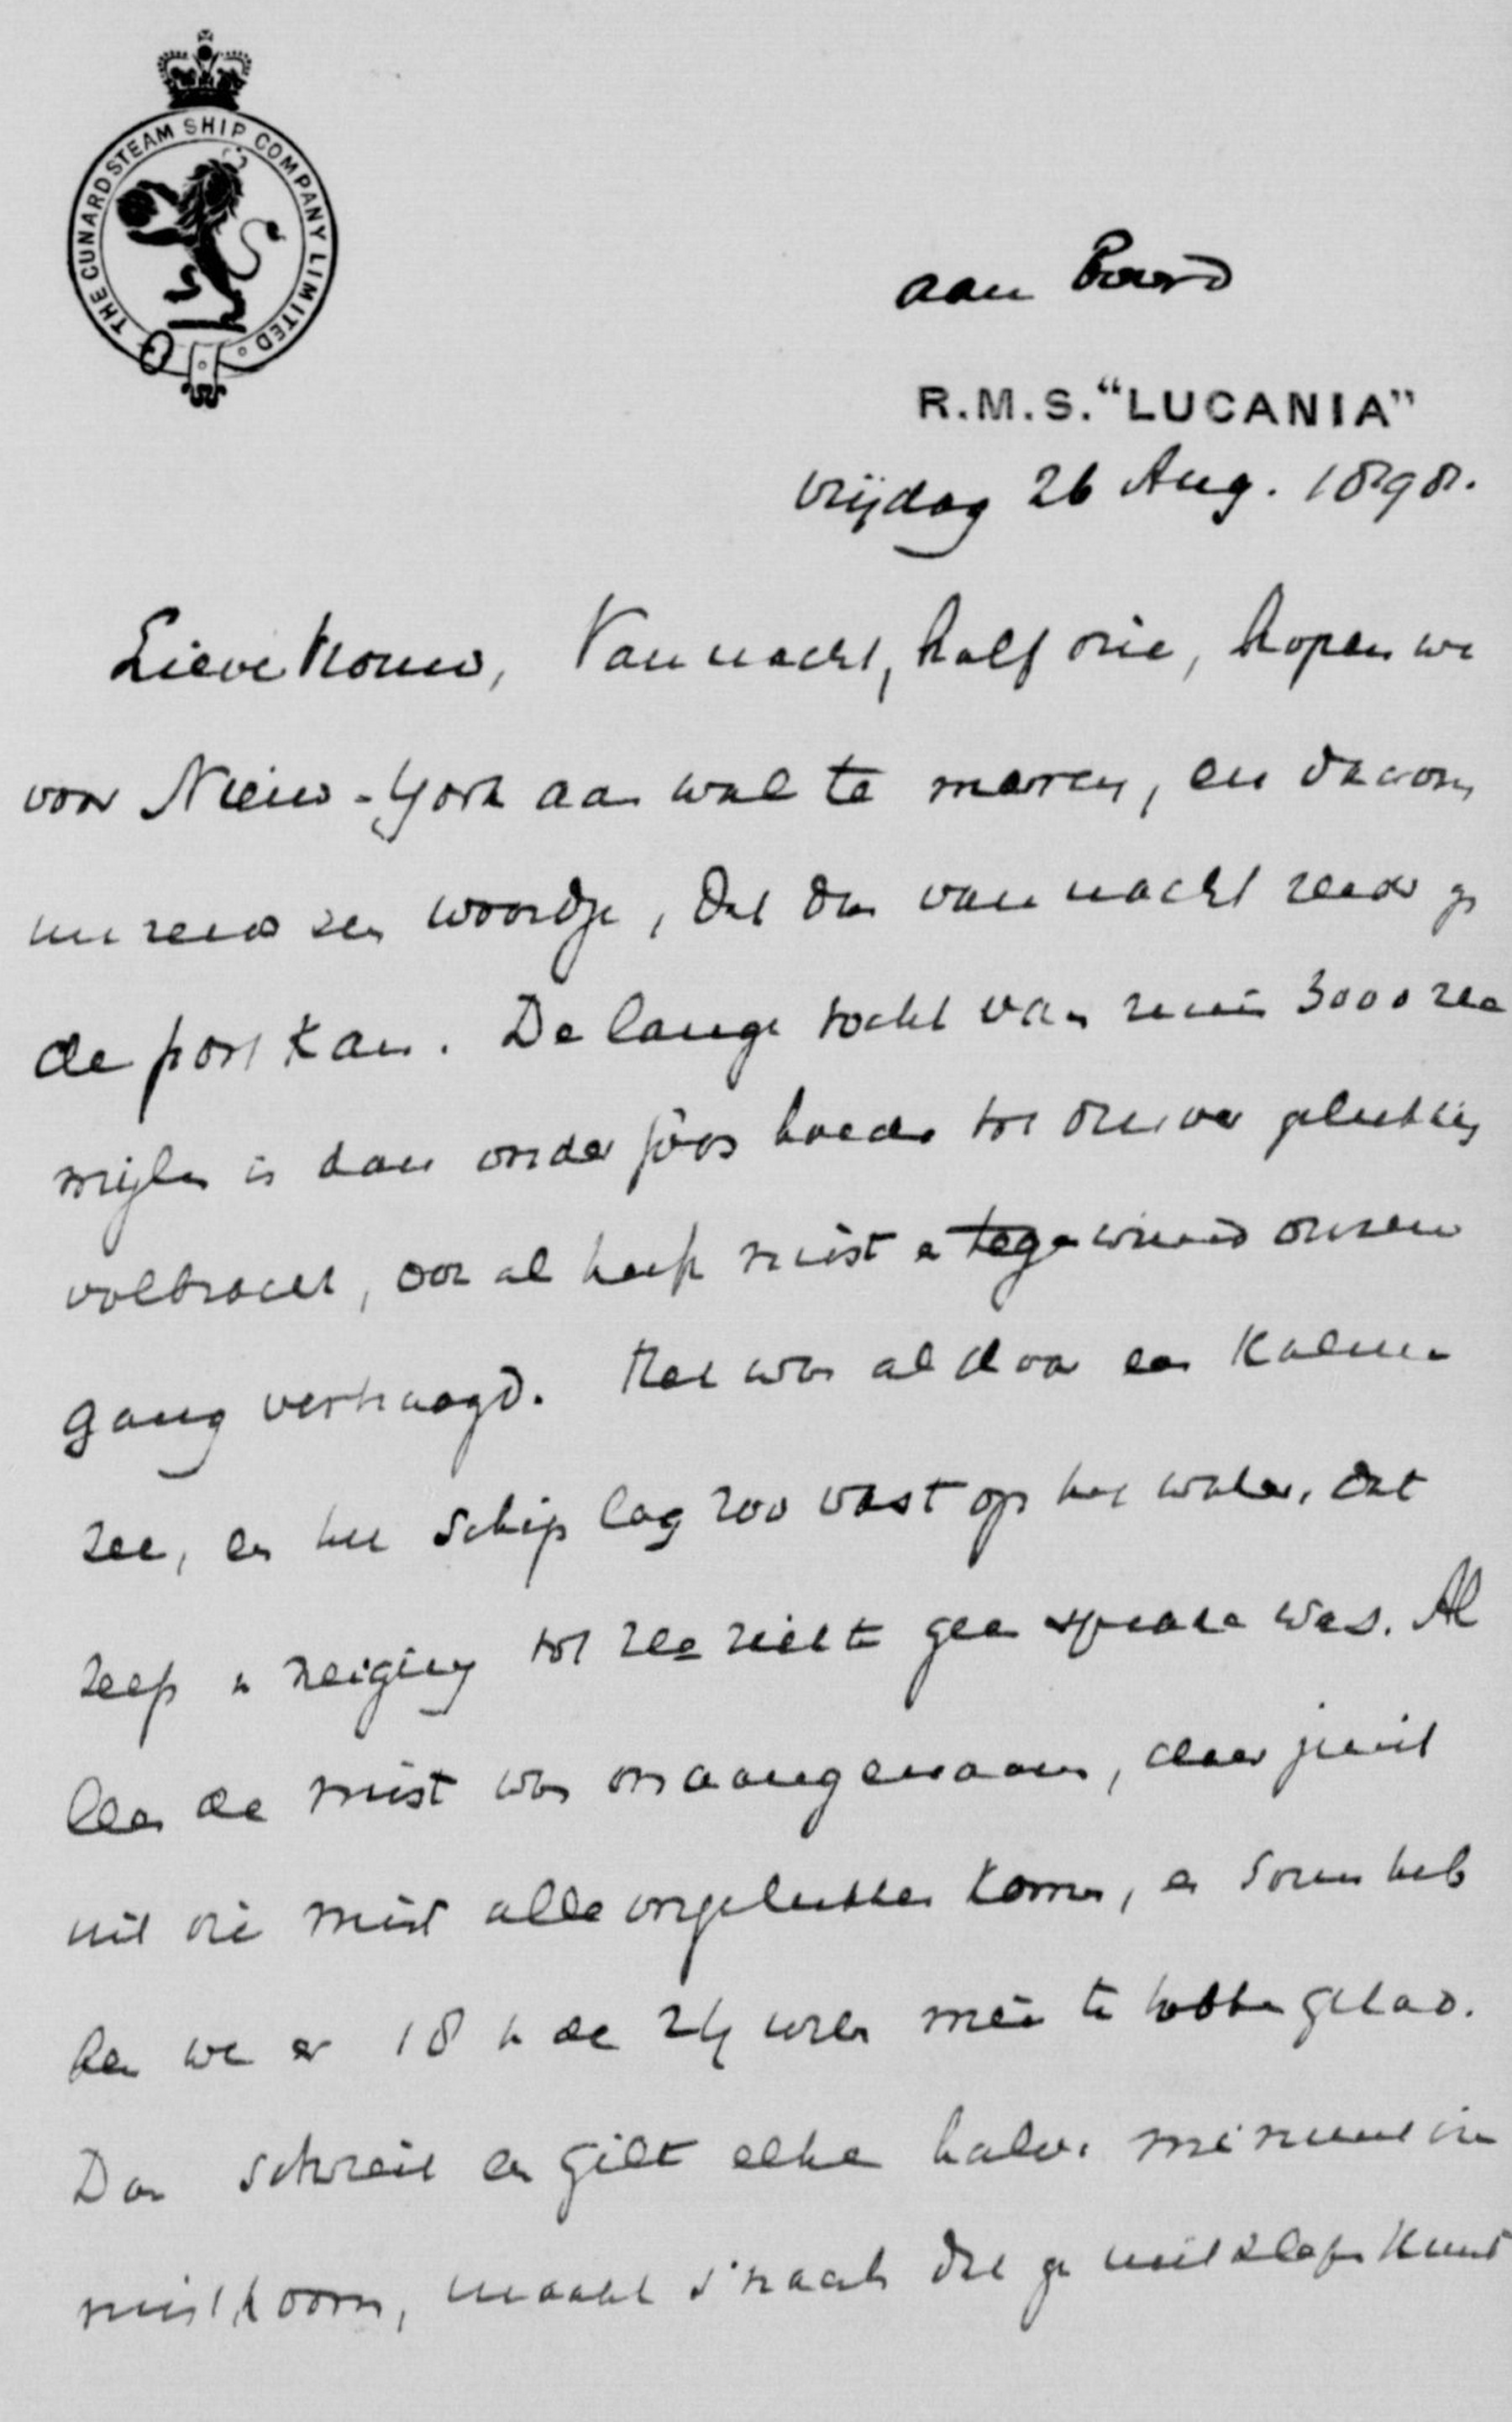 THE CUNARD STEAM SHIP COMPANY LIMITED
aan Boord
R.M.S. "LUCANIA"
vrijdag 26 Aug. 1898.
Lieve Vrouw, Van nacht, half drie, hopen we
voor Nieuw-York aan wal te meren, en daarom
nu reeds een woordje, dat dan van nacht reeds op
de post kan. De lange tocht van ruim 3000 zee
mijlen is dan onder Gods hoede tot dusver gelukkig
volbracht, ook al heeft mist en tegenwind onzen
gang vertraagd. Het was al door een kalme
zee, en het schip lag zoo vast op het water, dat
zelfs van neiging tot zeeziekte geen sprake was. Al
leen de mist was onaangenaam, daar juist
uit die mist alle ongelukken komen, en soms heb
ben we er 18 van de 24 uren mee te tobben gehad.
Dan schreit en gilt elke halve minuut de
misthoorn, maakt s'nachts dat ge niet slapen kunt